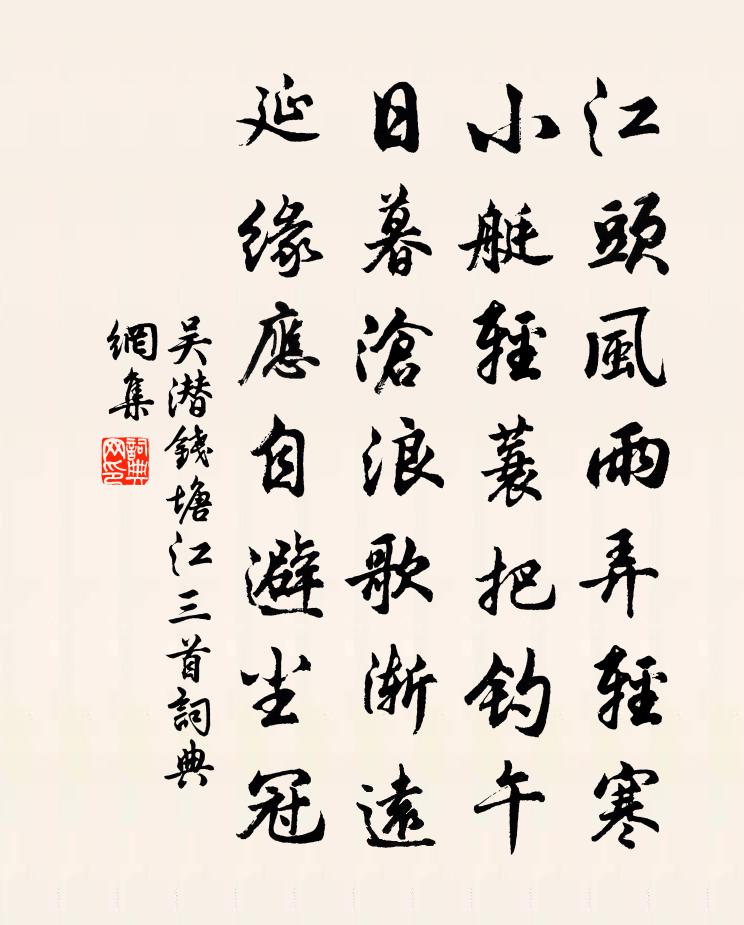 江頭風雨弄輕寒
小艇輕蓑把钓午
日暮滄浪歌渐遠
延缘應自避尘冠
吴潜錢塘江三首詞典
網集
詞典
网印